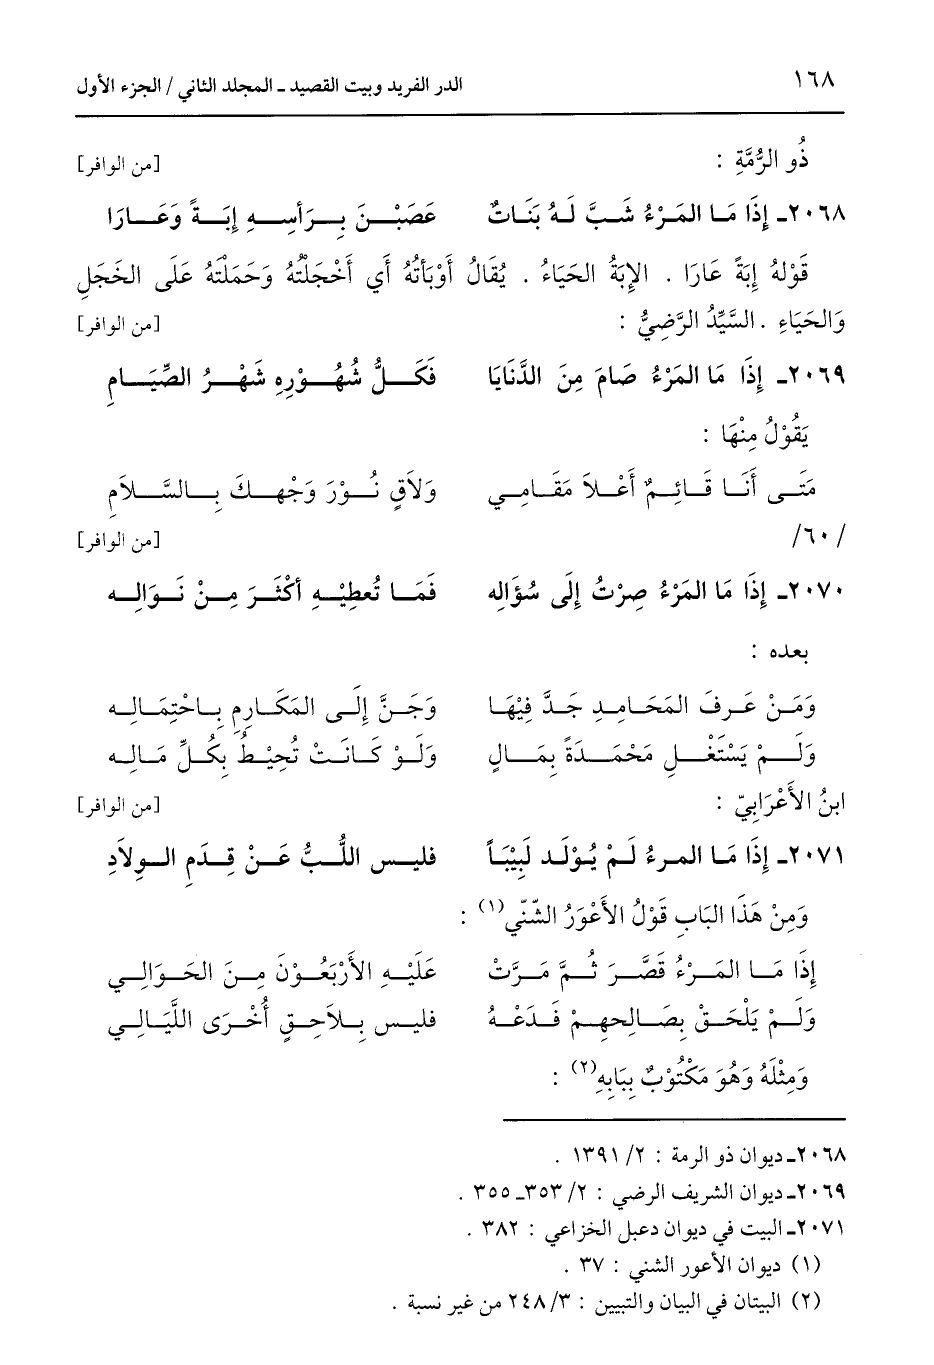 ١٦٨ الدر الفريد وبيت القصيد ـ المجلد الثاني / الجزء الأول
ذُو الرُّمَّةِ : [من الوافر]
٢٠٦٨ـ إِذَا مَا المَرْءُ شَبَّ لَهُ بَنَاتٌ عَصَبْنَ بِرَأْسِهِ إِبَةً وَعَارَا
قَوْلهُ إِبَةً عَارَا . الإِبَةُ الحَيَاءُ . يُقَالُ أَوْبَأتُهُ أي أَخْجَلْتُهُ وَحَمَلْتَهُ عَلَى الخَجَلِ
وَالحَيَاءِ . السَّيِّدُ الرَّضِيُّ : [من الوافر]
٢٠٦٩ـ إِذَا مَا المَرْءُ صَامَ مِنَ الدَّنَايَا فَكَلُّ شُهُوْرِهِ شَهْرُ الصِّيَامِ
يَقُوْلُ مِنْهَا :
مَتَى أَنَا قَائِمٌ أَعْلاَ مَقَامِي وَلاَقٍ نُوْرَ وَجْهِكَ بِالسَّلاَمِ
/٦٠/ [من الوافر]
٢٠٧٠ـ إِذَا مَا المَرْءُ صِرْتُ إِلَى سُؤَالِه فَمَا تُعطِيْهِ أكْثَرَ مِنْ نَوَالِه
بعده :
وَمَنْ عَرفَ المَحَامِدِ جَدَّ فِيْهَا وَجَنَّ إِلَى المَكَارِمِ بِاحْتِمَالِه
وَلَمْ يَسْتَغْلِ مَحْمَدَةً بِمَالٍ وَلَوْ كَانَتْ تُحِيْطُ بِكُلِّ مَالِه
ابنُ الأَعْرَابِيّ : [من الوافر]
٢٠٧١ـ إِذَا مَا المرءُ لَمْ يُوْلَد لَبِيْبَاً فليس اللُّبُّ عَنْ قِدَمِ الوِلاَدِ
وَمِنْ هَذَا البَابِ قَوْلُ الأَعْوَرُ الشّنّي(١) :
إِذَا مَا المَرْءُ قَصَّرَ ثُمَّ مَرَّتْ عَلَيْهِ الأَرْبَعُوْنَ مِنَ الحَوَالِي
وَلَمْ يَلْحَقْ بِصَالِحِهِمْ فَدَعْهُ فليس بِلاَحِقٍ أُخْرَى اللَّيَالِي
وَمِثْلَهُ وَهُوَ مَكْتُوْبٌ بِبَابِهِ(٢) :
٢٠٦٨ـ ديوان ذو الرمة : ٢/ ١٣٩١ .
٢٠٦٩ـ ديوان الشريف الرضي : ٢/ ٣٥٣ـ ٣٥٥ .
٢٠٧١ـ البيت في ديوان دعبل الخزاعي : ٣٨٢ .
(١) ديوان الأعور الشني : ٣٧ .
(٢) البيتان في البيان والتبيين : ٣/ ٢٤٨ من غير نسبة .